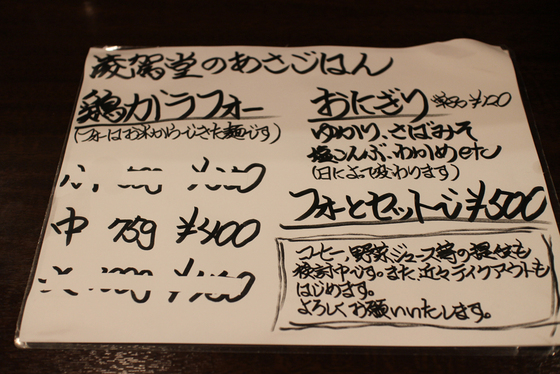 凌駕堂のあさごはん
鶏がラフォー
(フォーはお米からできた麺です)
中 75g ¥400
おにぎり 単品 ¥120
ゆかり、さばみそ
塩こんぶ、わかめetc
(日によって変わります)
フォーとセットで¥500
コーヒー、野菜ジュース等の提供も
検討中です。また、近々テイクアウトも
はじめます。
よろしくお願いいたします。